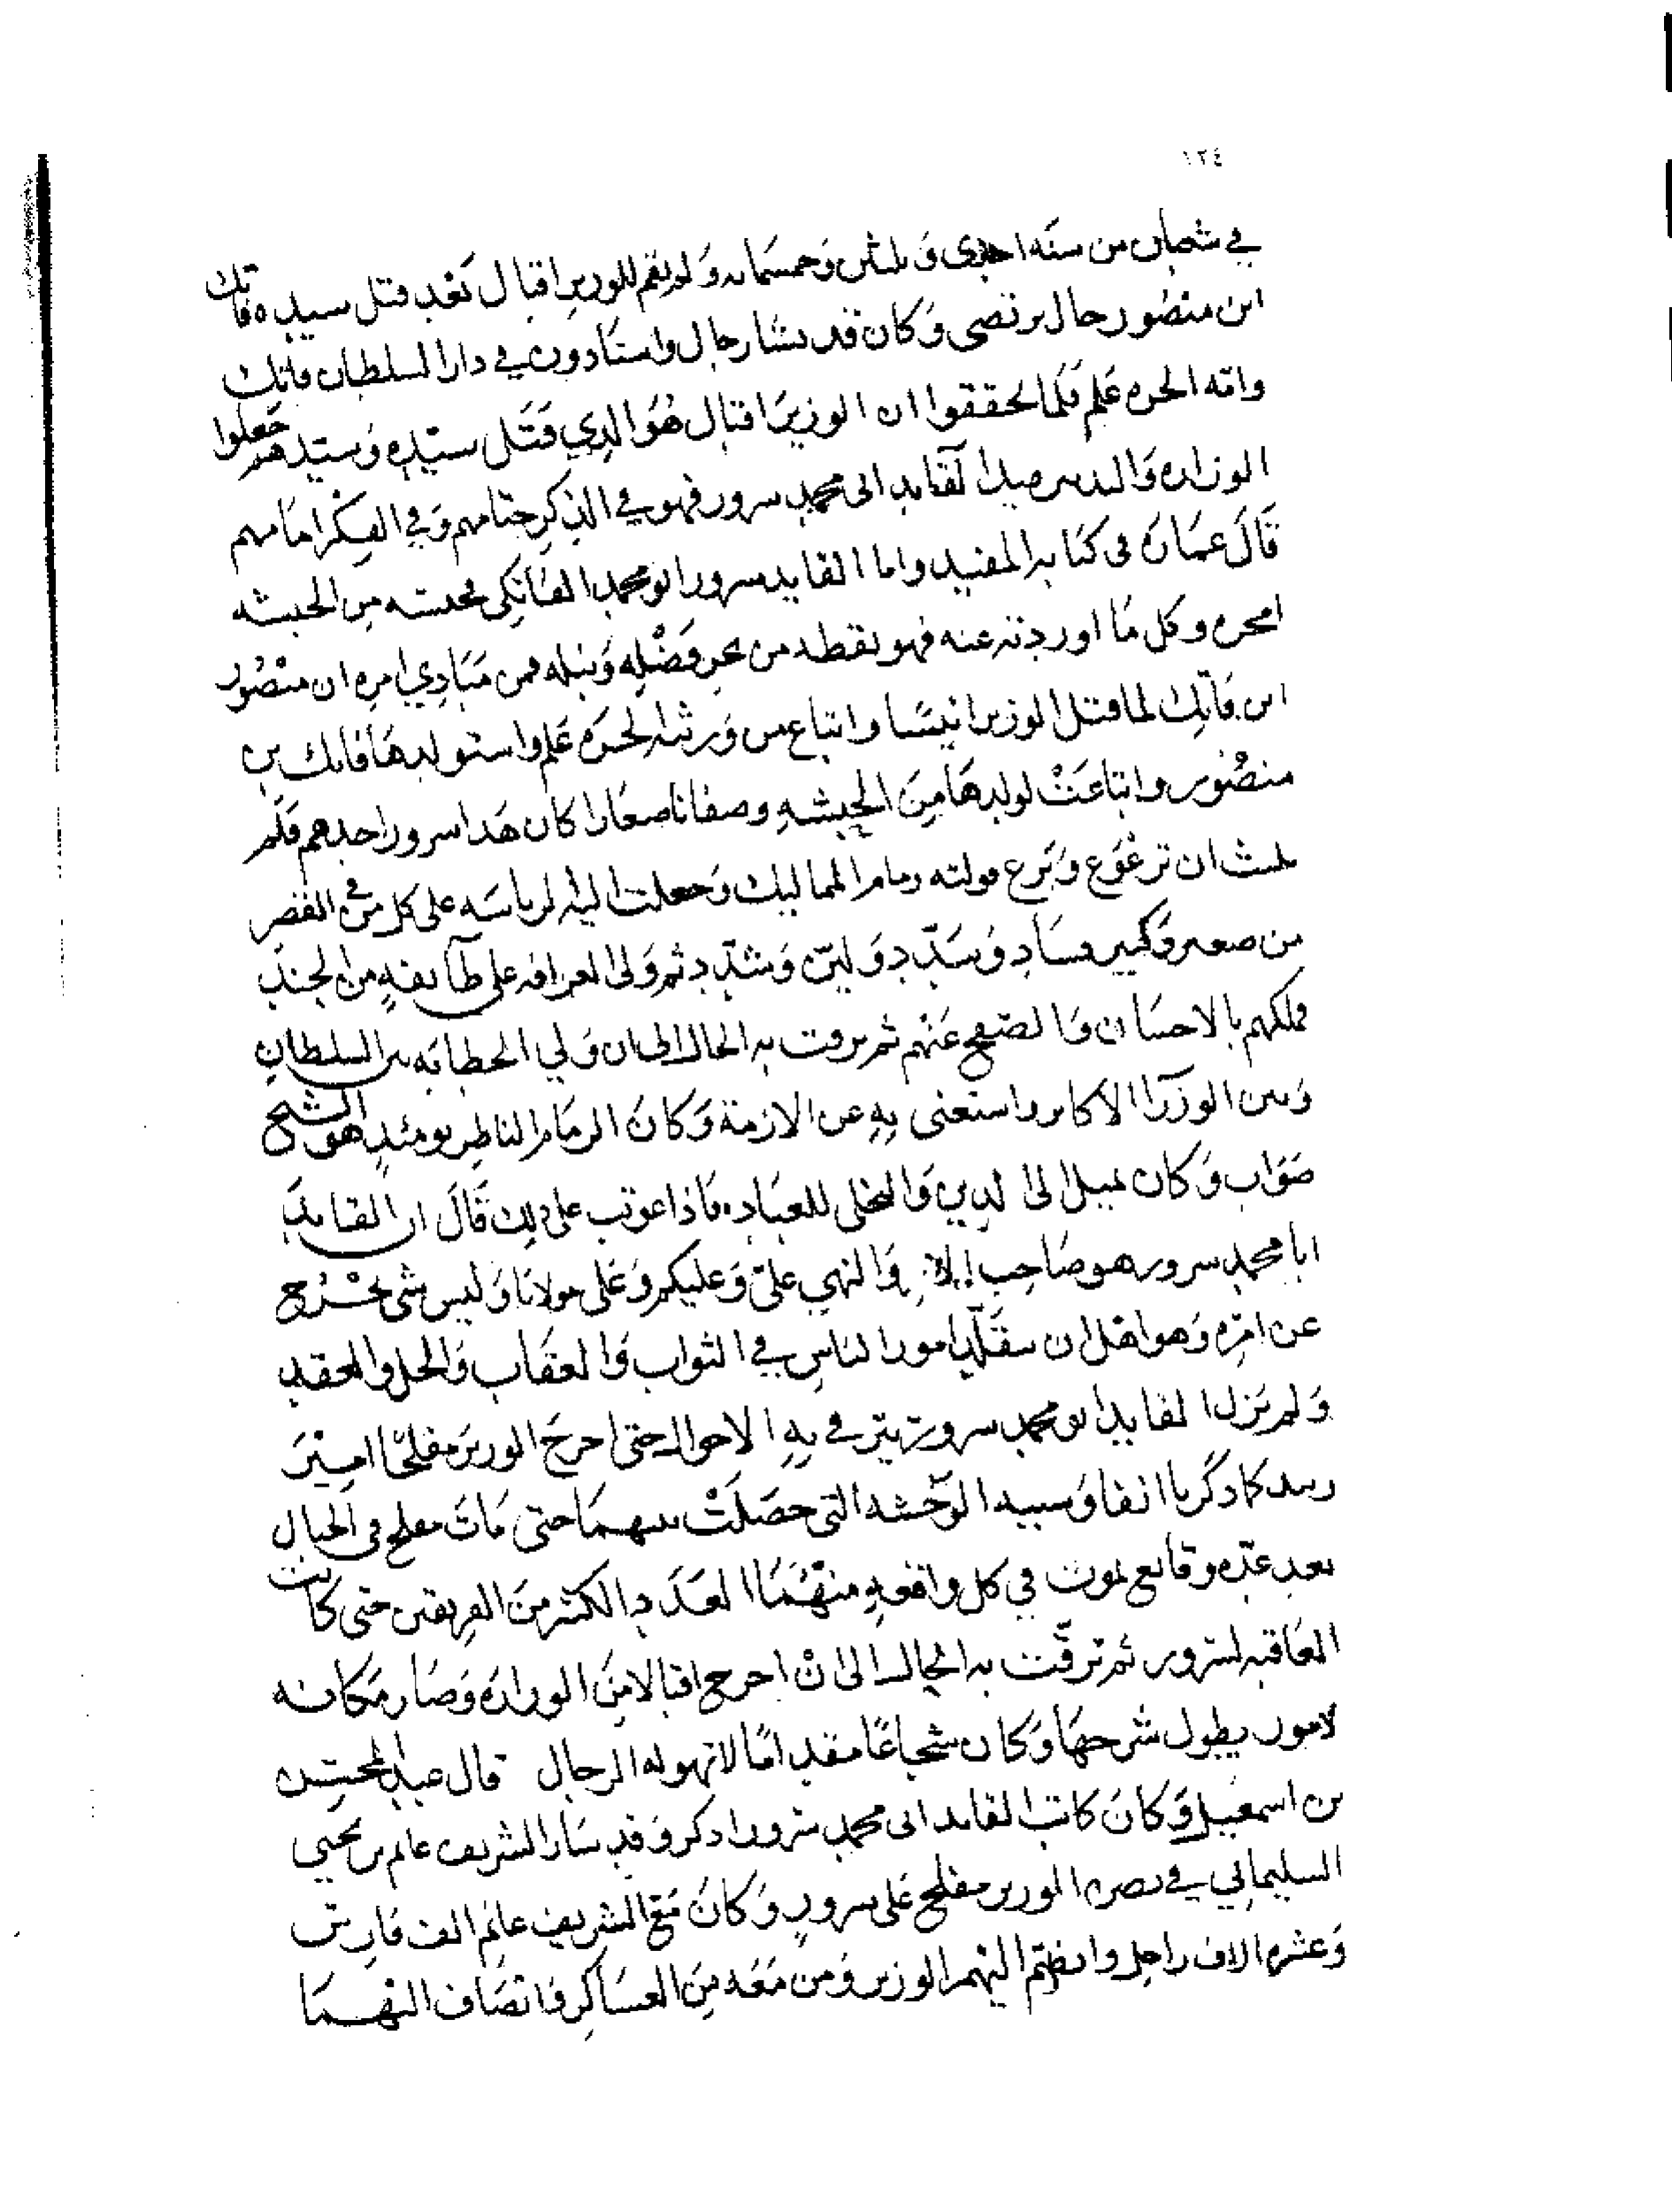 ١٢٤
في شعبان من سنه احدى وثلثين وخمسمايه ولم يقم للوزير اقبال بعد قتل سيده فاتك
ابن منصور حال يرتضى وكان قد نشا رجال واستادون في دار السلطان فاتك
وامه الحره علم فلما تحققوا ان الوزير اقبال هو الذي قتل سيده وسيدهم جعلوا
الوزاره والتدبير الى القايد ابى محمد سرور فهو في الذكر ختامهم وفي الفكر امامهم
قال عماره في كتابه المفيد واما القايد سرور ابو محمد الفاتكى فجنسه من الحبشه
امحره وكل ما اوردته عنه فهو نقطه من بحر فضله ونبله فمن مبادي امره ان منصور
ابن فاتك لما قتل الوزير انيسا وابتاع من ورثته الحره علم واستولدها فاتك بن
منصور وابتاعت لولدها من الحبشه وصفانا صغارا كان هذا سرور احدهم فلم
يلبث ان ترعرع وبرع فولته زمام المماليك وجعلت اليه الرياسه على كل من في القصر
من صغير وكبير فساد وسدد وليّن وشدد ثم ولى العرافه على طايفه من الجند
فملكهم بالاحسان والصفح عنهم ثم ترقت به الحال الى ان ولي الخطابه بين السلطان
وبين الوزرا الاكابر واستغنى به عن الازمة وكان الزمام الناظر يومئد هو الشيخ
صواب وكان يميل الى الدين والتخلى للعباده فاذا عوتب على ذلك قال ان القايد
ابا محمد سرور هو صاحب الامر والنهي عليّ وعليكم وعلى مولانا وليس شى يخرج
عن امره وهو اهل ان يتقلد امور الناس في الثواب والعقاب والحل والعقد
ولم يزل القايد ابو محمد سرور يترقى به الاحوال حتى اخرج الوزير مفلحا من
زبيد كما ذكرنا انفا وسببه الوحشه التى حصلت بينهما حتى مات مفلح في الجبال
بعد عده وقايع يموت في كل واقعه منهما العدد الكثير من الفريقين حتى كانت
العاقبه لسرور ثم ترقّت به الحال الى ان اخرج اقبالا من الوزاره وصار مكانه
لامور يطول شرحها وكان شجاعًا مقدامًا لا تهوله الرجال قال عبد المحسن
بن اسمعيل وكان كاتب القايد ابى محمد سرور اذكر وقد سار الشريف غانم بن يحيى
السليماني في نصره الوزير مفلح على سرور وكان مع الشريف غانم الف فارس
وعشره الاف راجل وانضم اليهم الوزير ومن معه من العساكر فانضاف اليهما